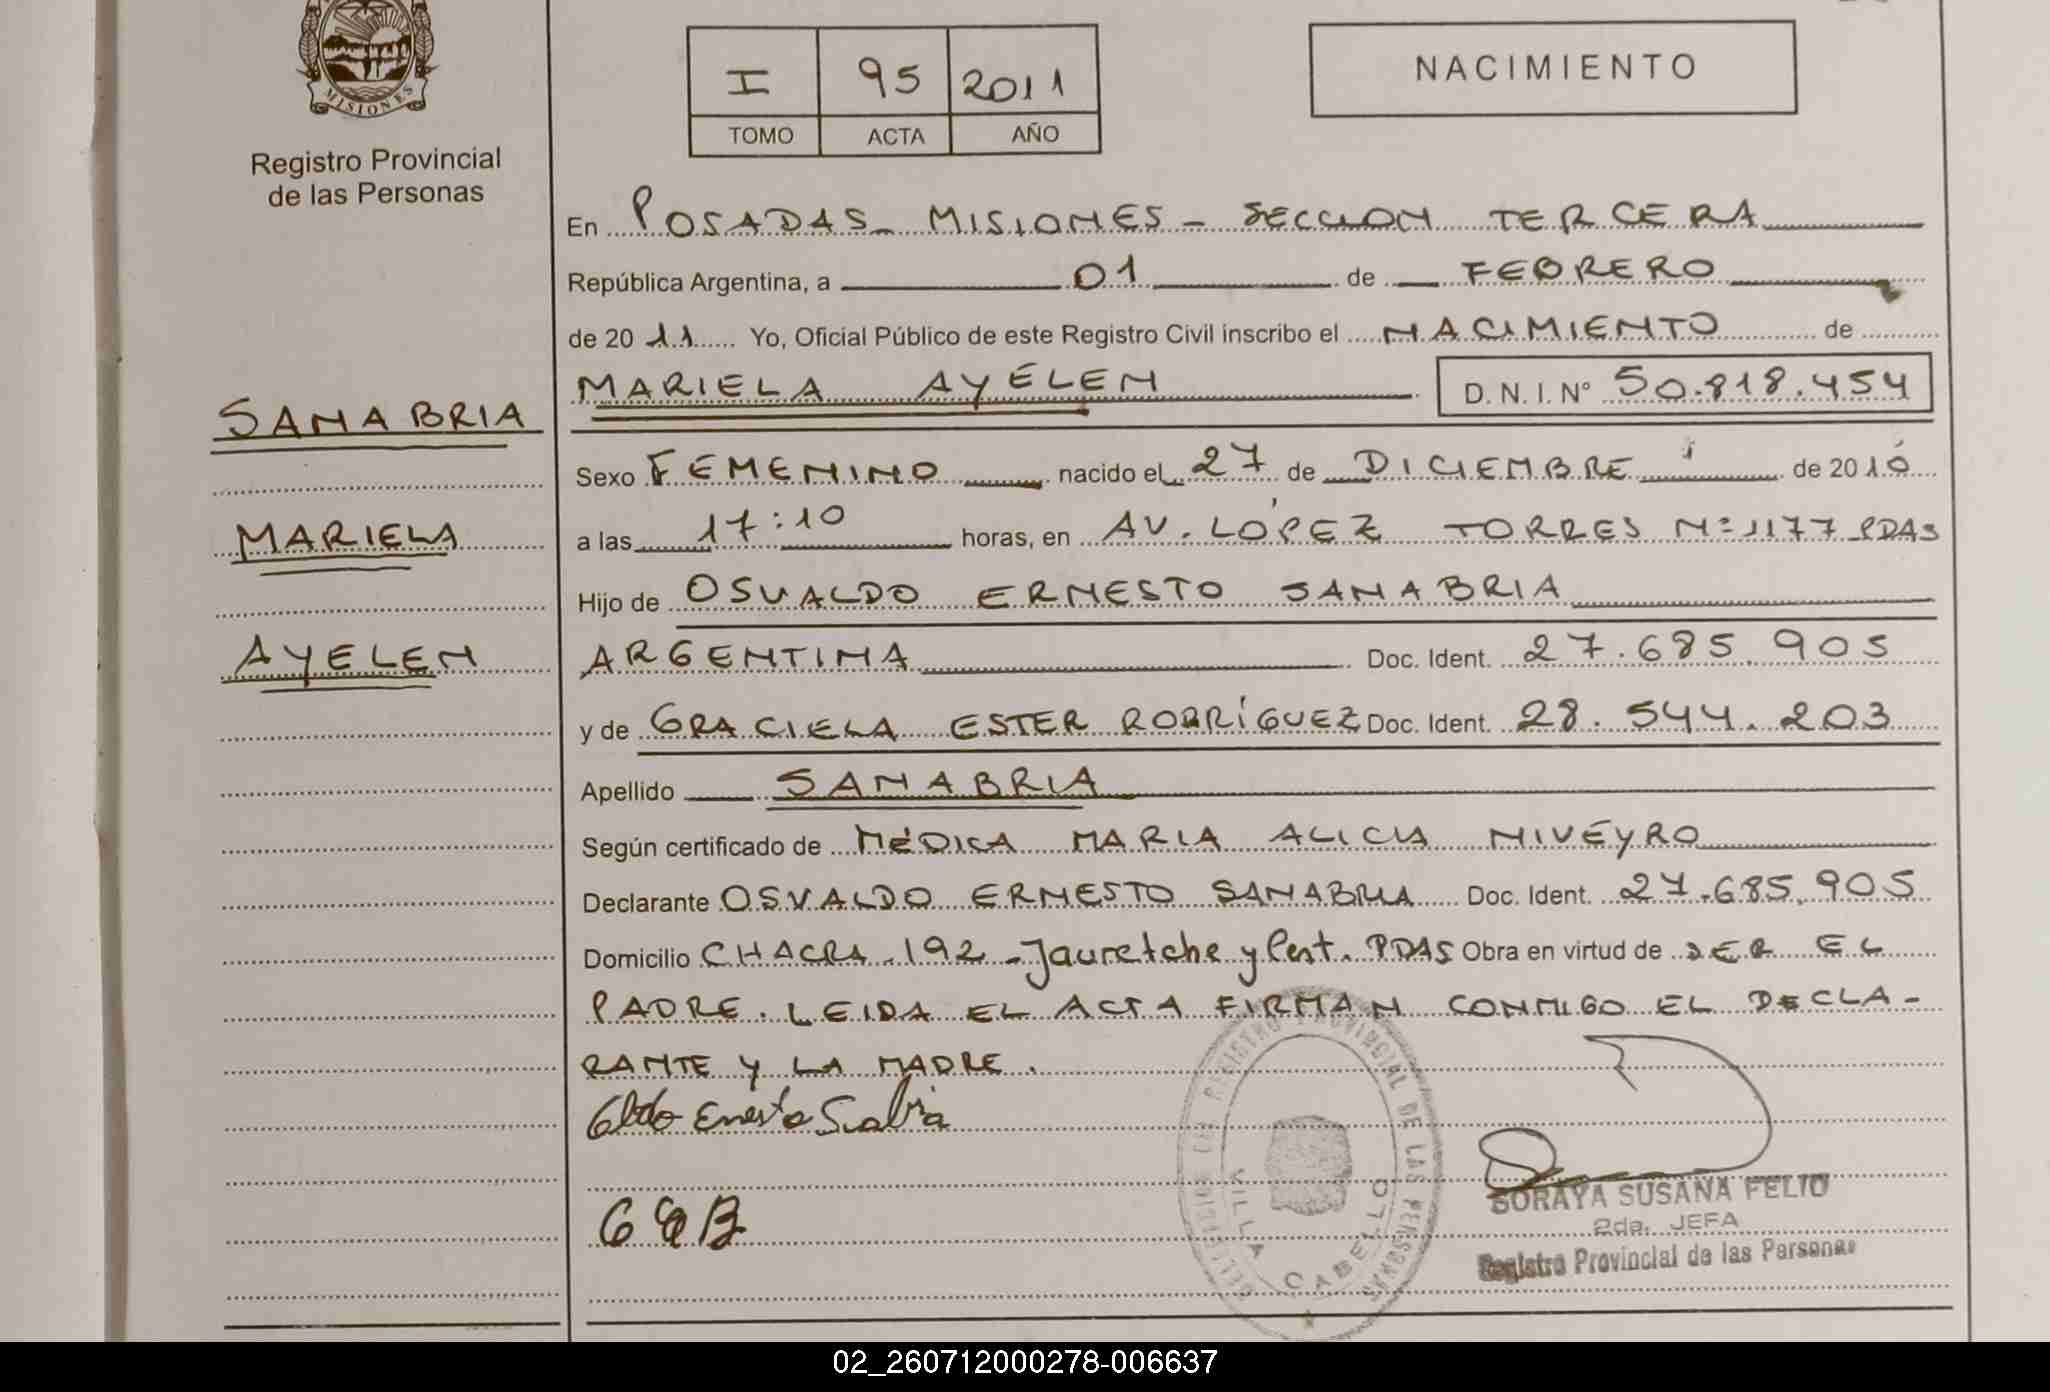 MISIONES
Registro Provincial
de las Personas
I 95 2011
TOMO ACTA AÑO
NACIMIENTO
En POSADAS - MISIONES - SECCION TERCERA
República Argentina, a 01 de FEBRERO
de 2011 Yo, Oficial Público de este Registro Civil inscribo el NACIMIENTO de
MARIELA AYELEN D. N. I. Nº 50.818.454
SANABRIA
Sexo FEMENINO nacido el 27 de DICIEMBRE de 2010
MARIELA
a las 17:10 horas, en AV. LÓPEZ TORRES Nº 1177 PDAS
Hijo de OSVALDO ERNESTO SANABRIA
AYELEN
ARGENTINA Doc. Ident. 27.685.905
y de GRACIELA ESTER RODRÍGUEZ Doc. Ident. 28.544.203
Apellido SANABRIA
Según certificado de MÉDICA MARIA ALICIA NIVEYRO
Declarante OSVALDO ERNESTO SANABRIA Doc. Ident. 27.685.905
Domicilio CHACRA 192 - Jauretche y PDAS Obra en virtud de SER EL
PADRE. LEIDA EL ACTA FIRMAN CONMIGO EL DECLA-
RANTE Y LA MADRE.
DELEGACION DEL REGISTRO PROVINCIAL DE LAS PERSONAS
VILLA CABELLO
SORAYA SUSANA FELIO
2da. JEFA
Registro Provincial de las Personas
02_260712000278-006637